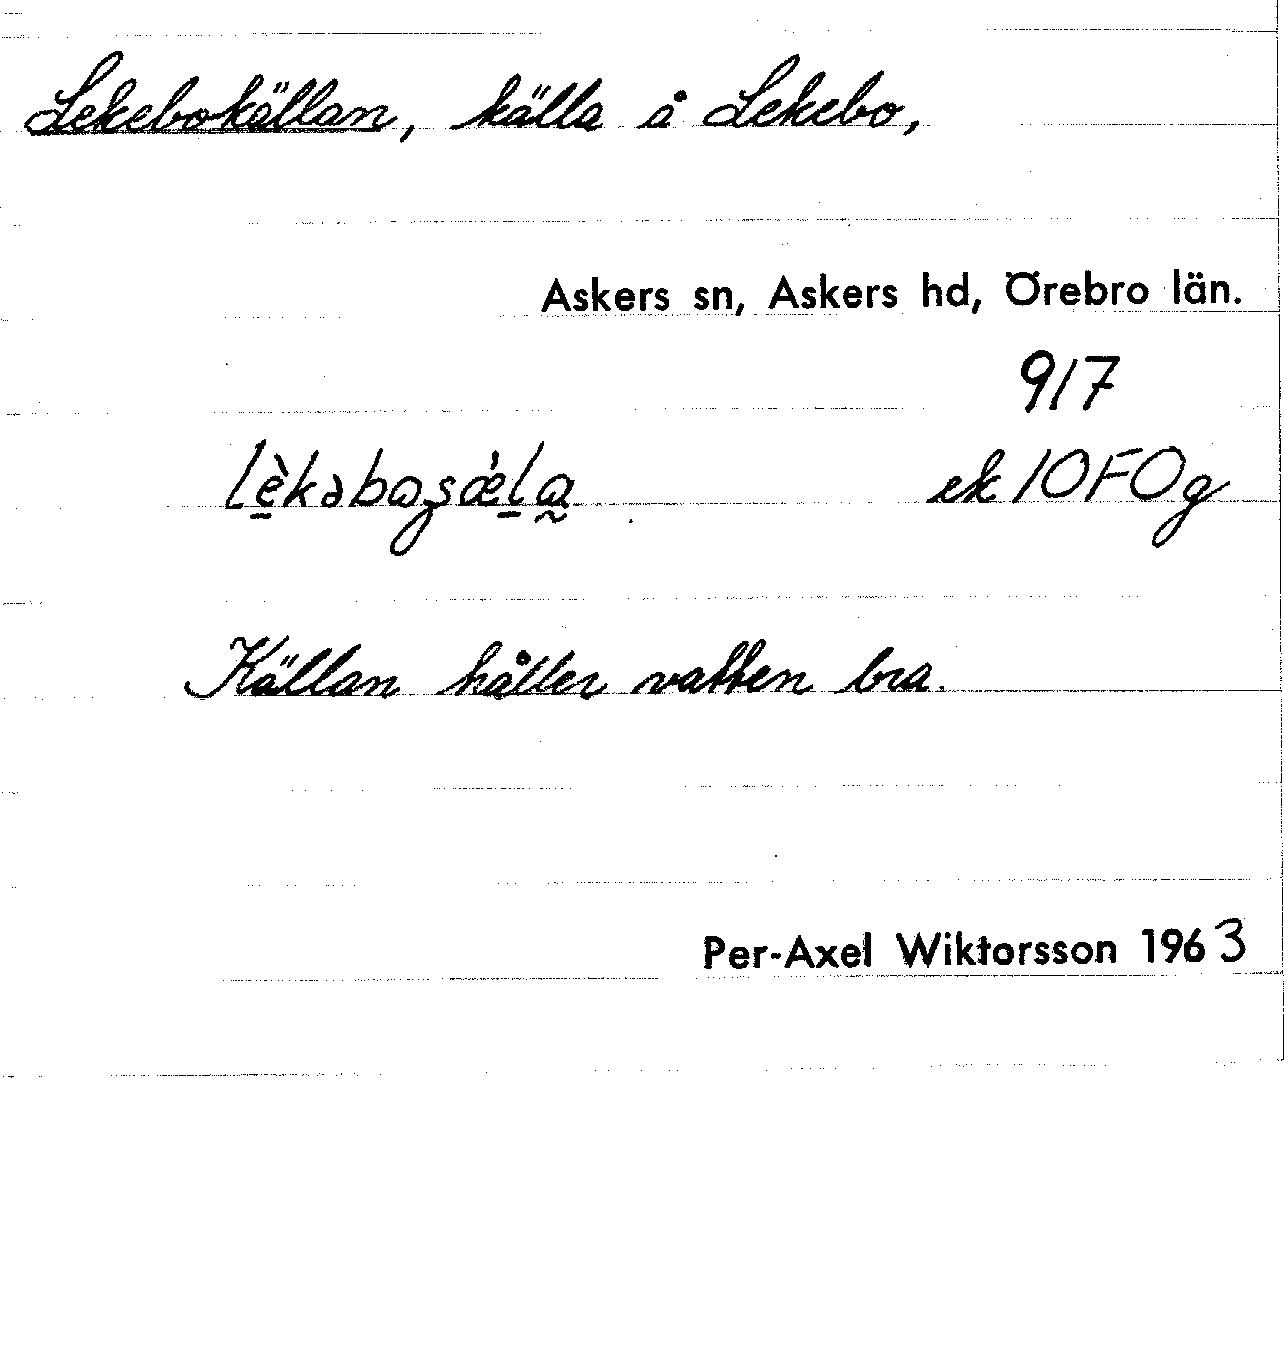 Lekebokällan, källa å Lekebo,
Askers sn, Askers hd, Örebro län.
9/7
lèkəboʂǽla ek 10F0g
Källan håller vatten bra.
Per-Axel Wiktorsson 1963